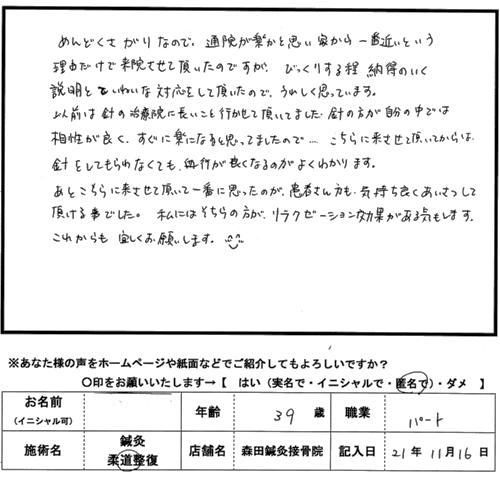 めんどくさがりなので、通院が楽かと思い家から一番近いという
理由だけで来院させて頂いたのですが、びっくりする程 納得のいく
説明とていねいな対応をして頂いたので、うれしく思っています。
以前は針の治療院に長いこと行かせて頂いてました。針の方が自分の中では
相性が良く、すぐに楽になると思ってましたので… こちらに来させて頂いてからは、
針をしてもらわなくても、血行が良くなるのがよくわかります。
あとこちらに来させて頂いて一番に思ったのが、患者さん方も、気持ち良くあいさつして
頂ける事でした。私にはそちらの方が、リラクゼーション効果がある気もします。
これからも 宜しくお願いします。
※あなた様の声をホームページや紙面などでご紹介してもよろしいですか?
〇印をお願いいたします→【 はい(実名で・イニシャルで・匿名で)・ダメ 】
お名前
(イニシャル可)
年齢
39 歳
職業
パート
施術名
鍼灸
柔道整復
店舗名
森田鍼灸接骨院
記入日
21年 11月 16日